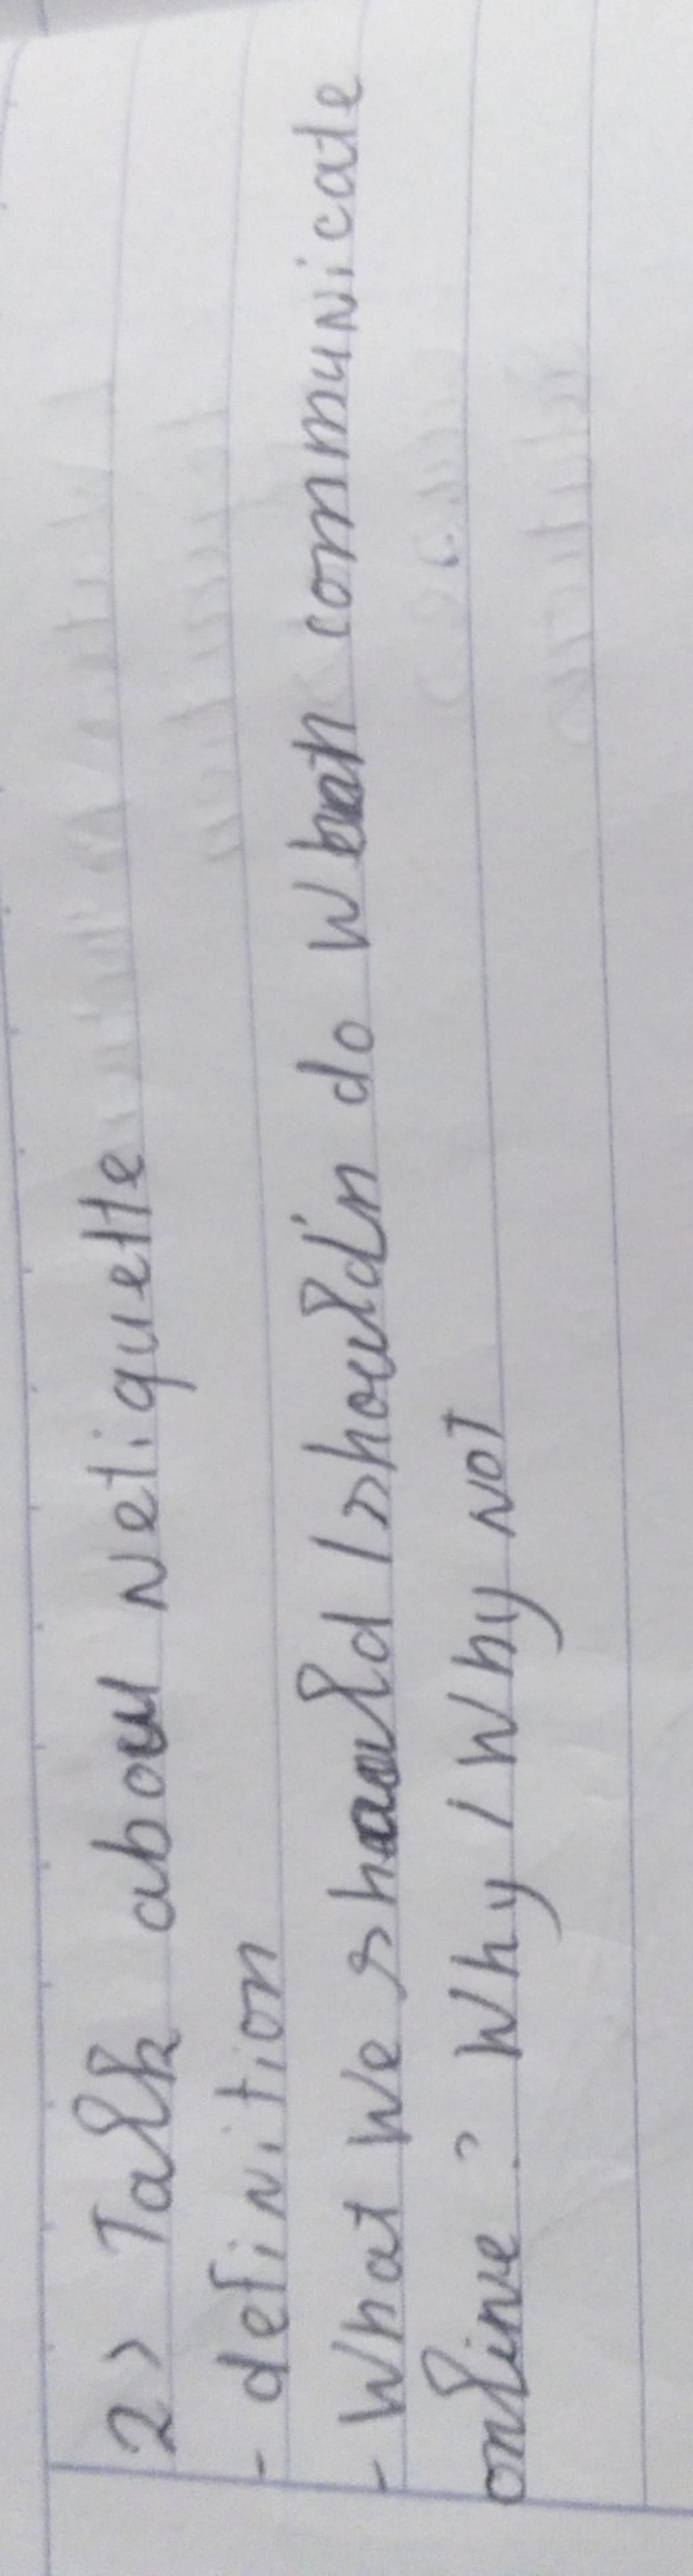 2) Talk about Netiquette
- definition
- What we should / should'n do when communicate
online? Why / Why not